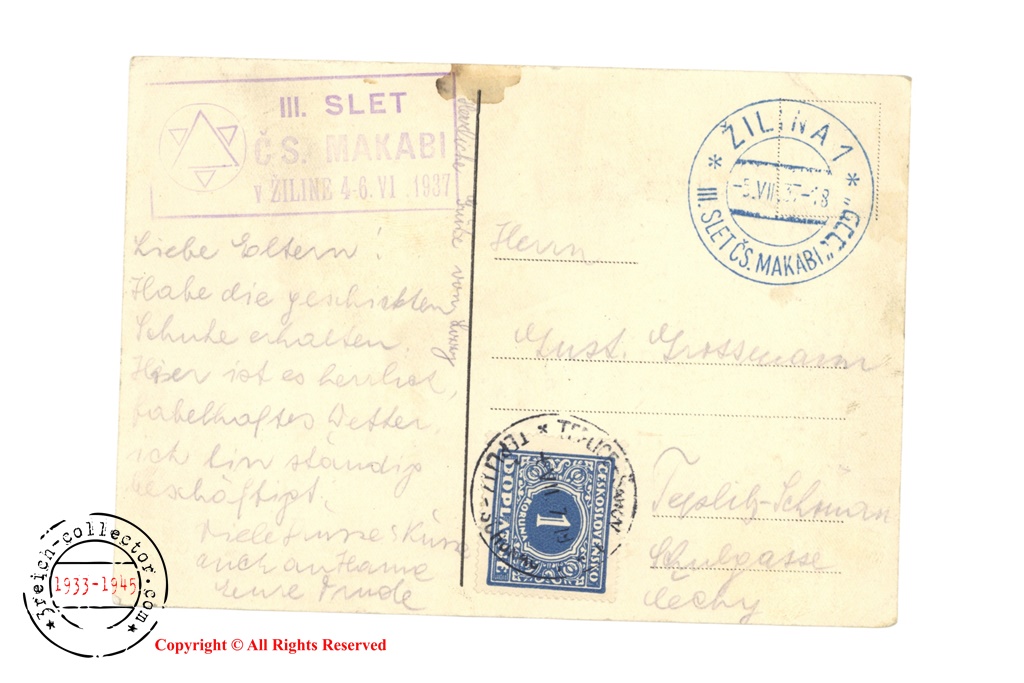 III. SLET
Č S. MAKABI
v ŽILINE 4-6. VI. 1937
Herzliche Grüße von
Liebe Eltern!
Habe die geschickten
Schuhe erhalten.
Hier ist es herrlich,
fabelhaftes Wetter,
ich bin ständig
beschäftigt.
Viele süsse Küsse
auch an Hanne
Eure Trude
* ŽILINA 1 *
-5. VII. 37-18
III. SLET ČS. MAKABI"
Herrn
Gust. Grossmann
Teplitz-Schönau
Schulgasse
Čechy
TEPLICE-ŠANOV
ČESKOSLOVENSKO
DOPLATNÉ
KORUNA
1
3reich-collector.com
1933-1945
Copyright © All Rights Reserved